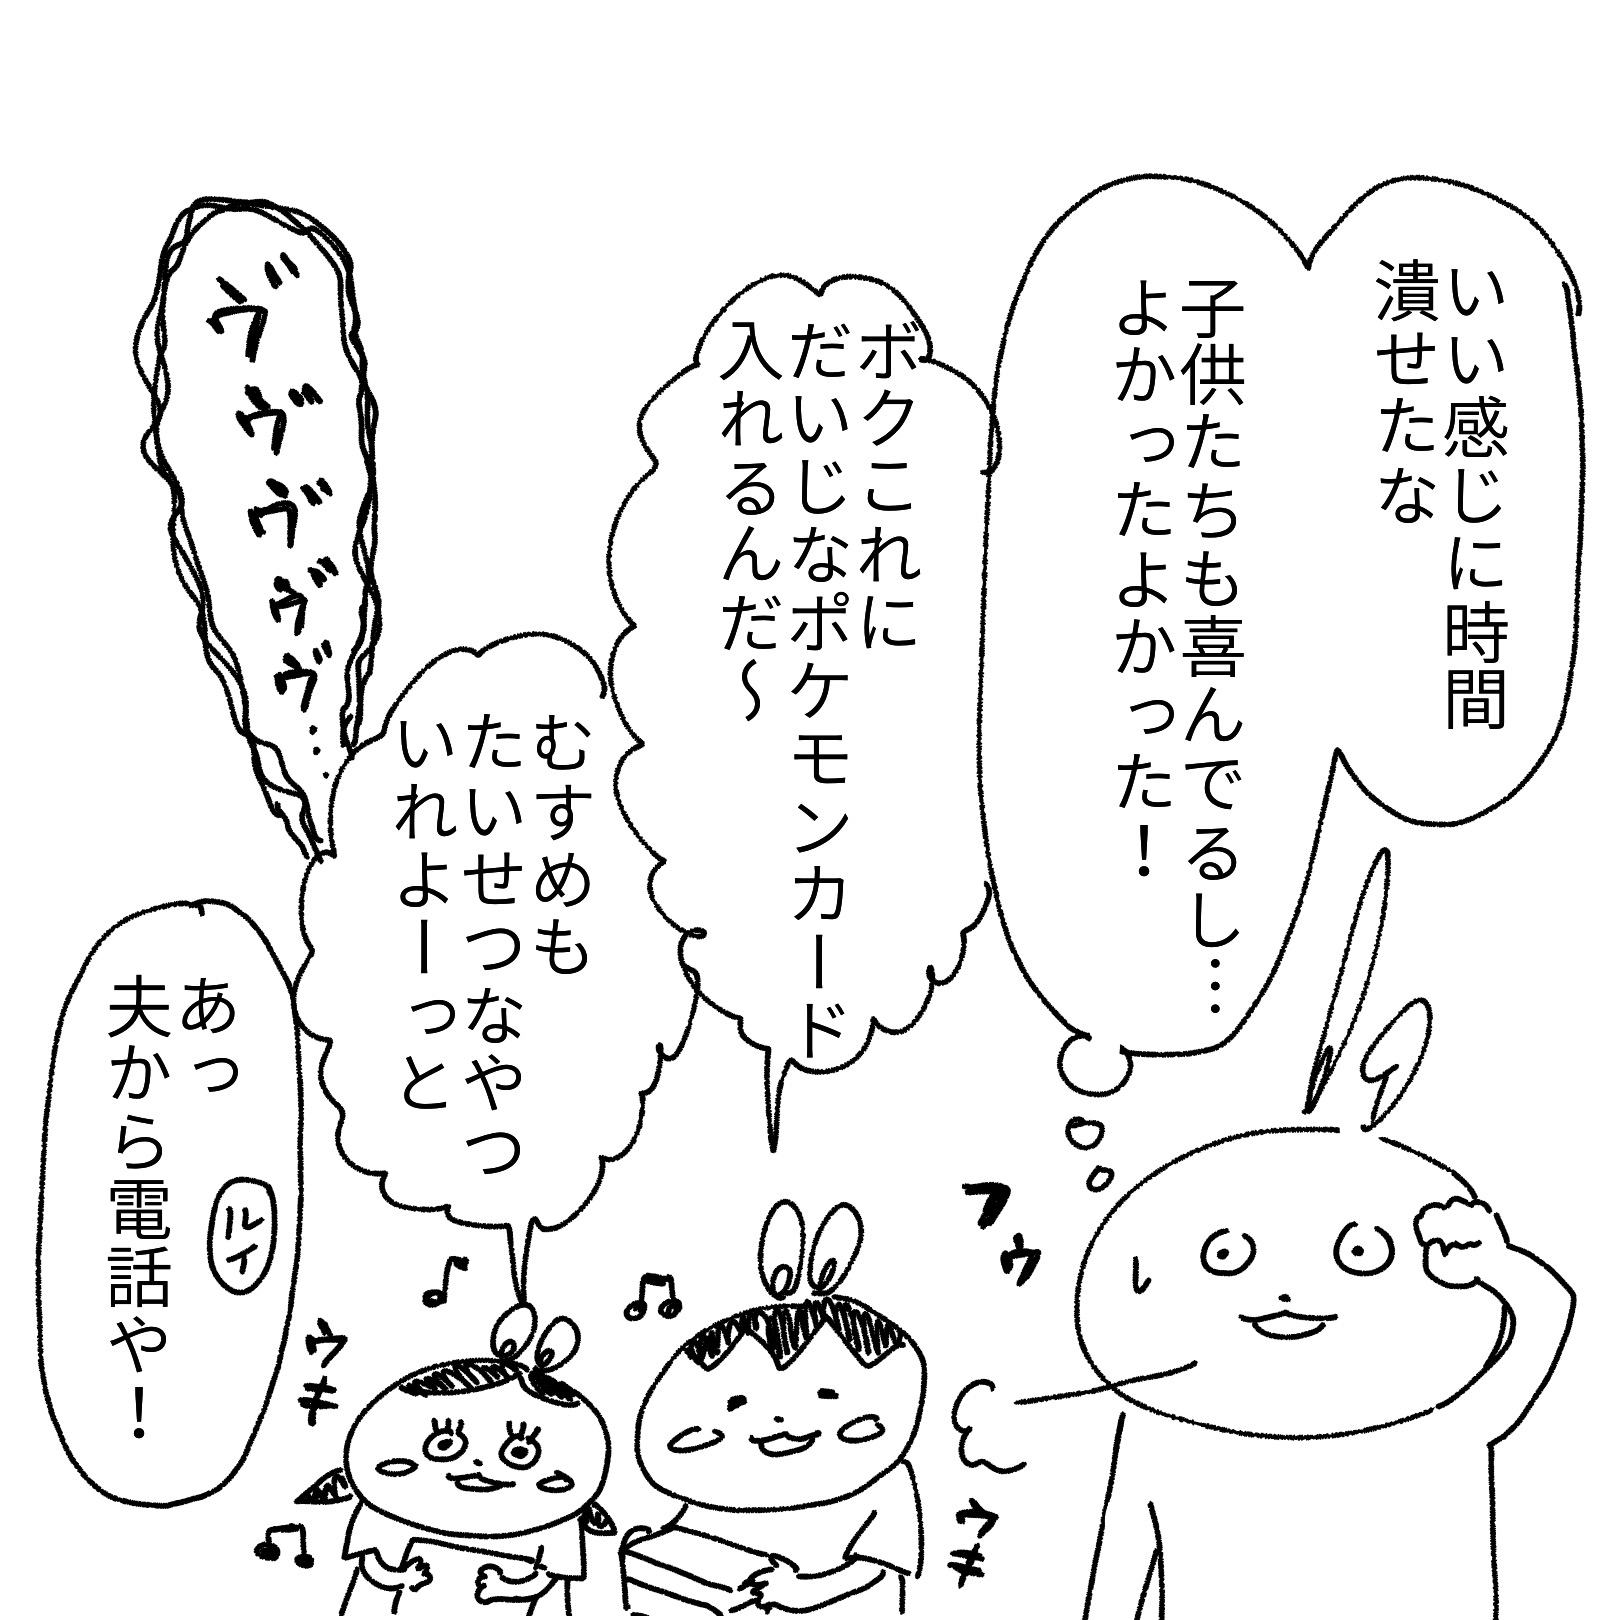 いい感じに時間
潰せたな
子供たちも喜んでるし…
よかったよかった！
フゥ
ボクこれに
だいじなポケモンカード
入れるんだ～
ウキ
むすめも
たいせつなやつ
いれよーっと
ウキ
ヴヴヴヴヴ…
あっ
夫から電話や！
ルイ